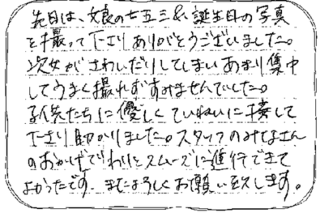 先日は、娘の七五三&誕生日の写真
を撮って下さりありがとうございました。
次女がさわいだりしてしまいあまり集中
してうまく撮れずすみませんでした。
子供たちに優しくていねいに接して
下さり助かりました。スタッフのみなさん
のおかげでわりとスムーズに進行できて
よかったです。またよろしくお願い致します。